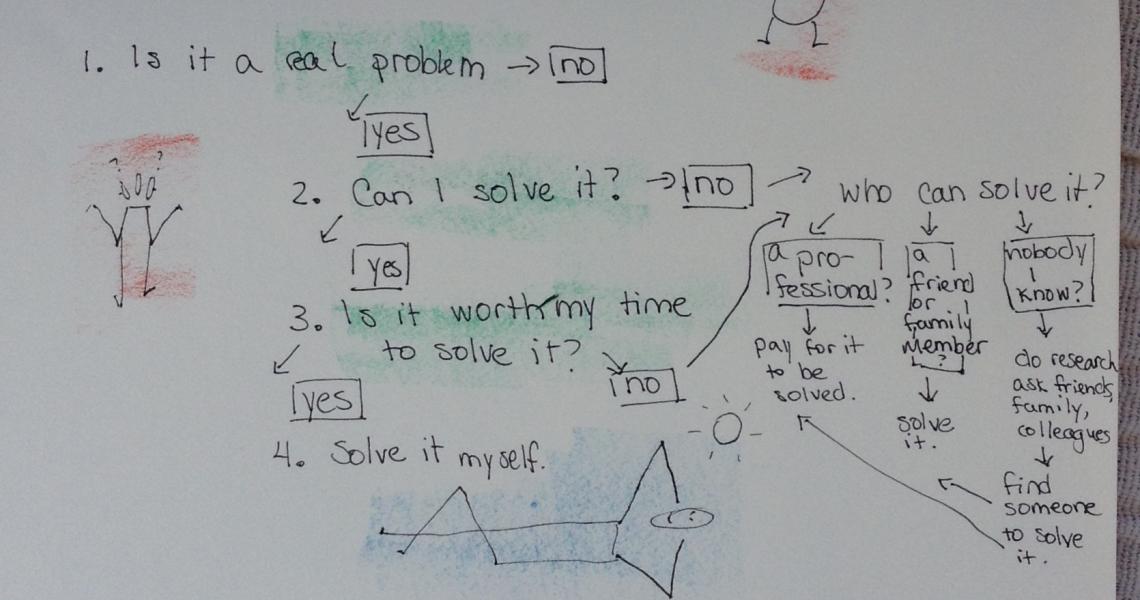 1. Is it a real problem → no
yes
2. Can I solve it? → no → who can solve it?
yes
3. Is it worth my time
to solve it?
no
yes
4. Solve it myself.
a pro-
fessional?
pay for it
to be
solved.
a
friend
or
family
member
?
solve
it.
nobody
I
know?
do research
ask friends,
family,
colleagues
find
someone
to solve
it.
? ?